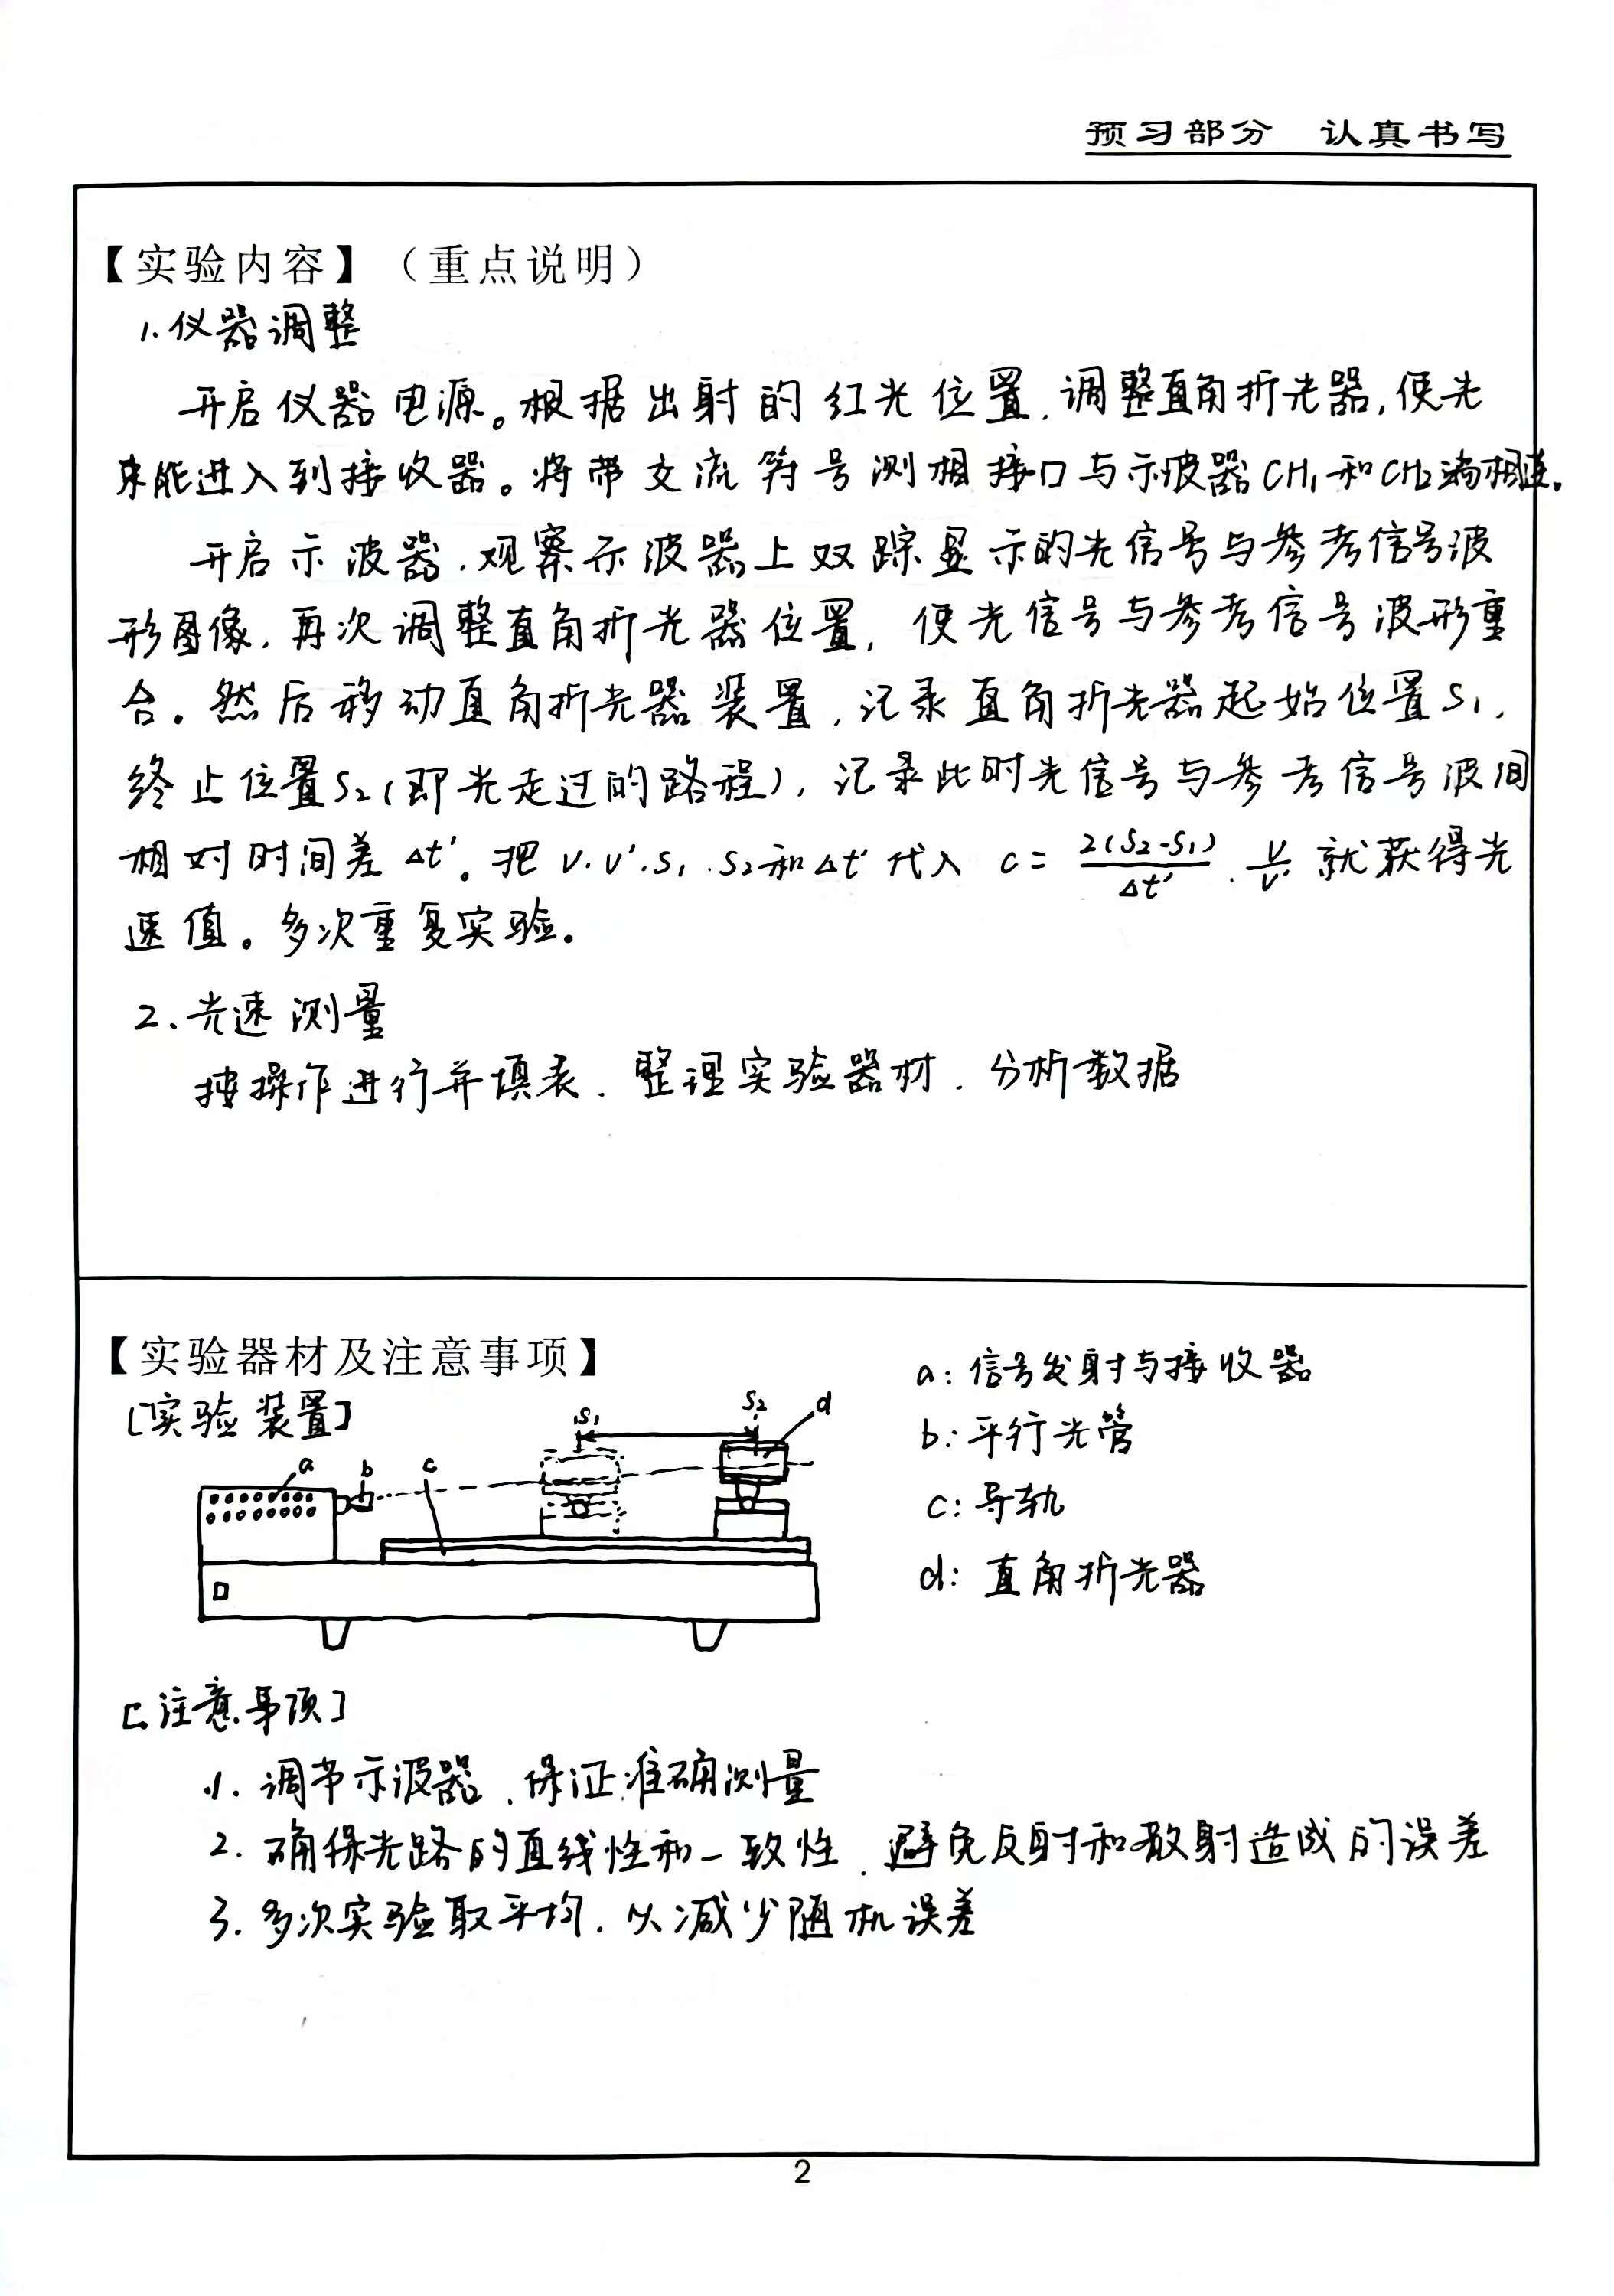 预习部分 认真书写
【实验内容】（重点说明）
1.仪器调整
开启仪器电源。根据出射的红光位置,调整直角折光器,使光
束能进入到接收器。将带交流符号测相接口与示波器CH1和CH2端相连。
开启示波器,观察示波器上双踪显示的光信号与参考信号波
形图像,再次调整直角折光器位置,使光信号与参考信号波形重
合。然后移动直角折光器装置,记录直角折光器起始位置S1,
终止位置S2(即光走过的路程),记录此时光信号与参考信号波间
相对时间差Δt'。把ν.ν'.S1.S2和Δt'代入 c = 2(S2-S1)/Δt' · ν/ν' 就获得光
速值。多次重复实验。
2.光速测量
按操作进行并填表.整理实验器材.分析数据
【实验器材及注意事项】
[实验装置]
a b c S1 S2 d
a: 信号发射与接收器
b: 平行光管
c: 导轨
d: 直角折光器
[注意事项]
1. 调节示波器,保证准确测量
2. 确保光路的直线性和一致性,避免反射和散射造成的误差
3. 多次实验取平均,以减少随机误差
2